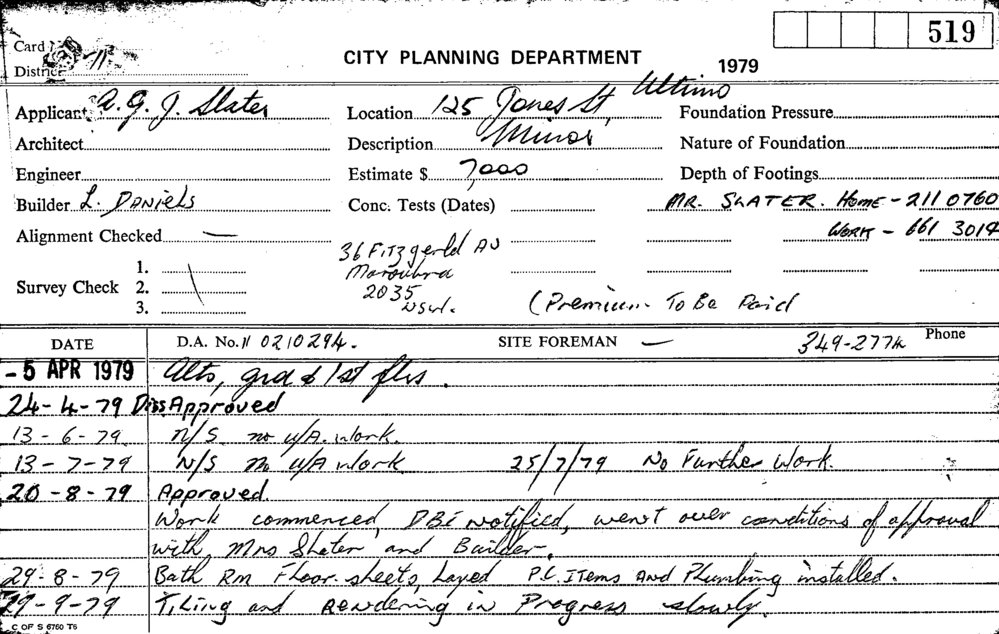 519
Card
District 11
CITY PLANNING DEPARTMENT 1979
Applicant A. G. J. Slater Location 125 Jones St, Ultimo Foundation Pressure
Architect Description Minor Nature of Foundation
Engineer Estimate $ 7,000 Depth of Footings
Builder L. DANIELS Conc. Tests (Dates) MR. SLATER. Home - 211 0760
Alignment Checked — WORK - 661 3014
36 Fitzgerld Av
Maroubra
2035
NSW.
Survey Check 1.
2.
3.
(Premium - To Be Paid
DATE D.A. No. 11 0210294. SITE FOREMAN — 349-2774 Phone
- 5 APR 1979 Alts, grd & 1st flrs.
24-4-79 DissApproved
13-6-79 N/S no u/A. work.
13-7-79 N/S no u/A work 25/7/79 No Further Work.
20-8-79 Approved.
Work commenced, DBI notified, went over conditions of approval
with, Mrs Slater and Builder.
29-8-79 Bath Rm Floor sheets, Layed P.C. ITems And Plumbing installed.
29-9-79 Tiling and Rendering in Progress slowly.
C OF S 6760 T6